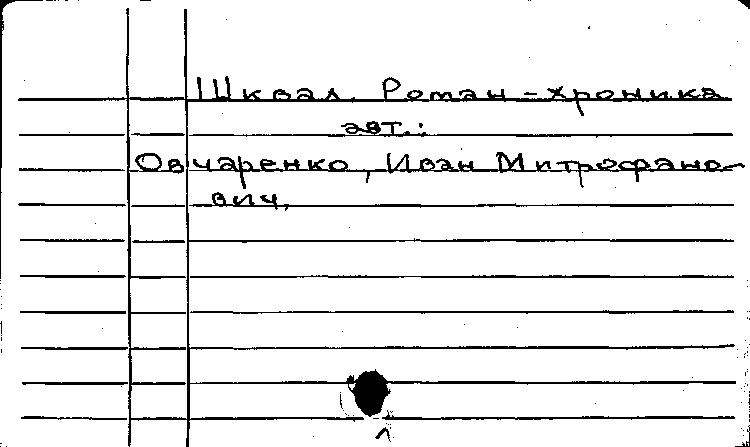 Шквал. Роман-хроника
авт.:
Овчаренко, Иван Митрофано-
вич.